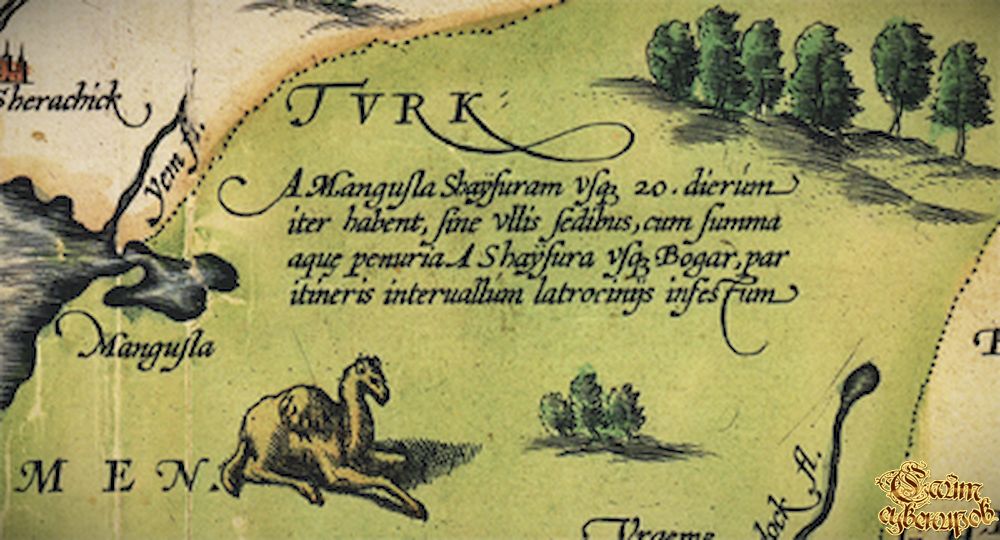 Sherachick
Yem fl.
TVRK
A Mangusla Shaÿsuram vsq₃ 20. dierum
iter habent, sine vllis sedibus, cum summa
aquę penuria. A Shaÿsura vsq₃ Bogar, par
itineris interuallum latrocinijs infestum
Mangusla
M E N.
fl.
Vrgeme
Сайт
сувениров